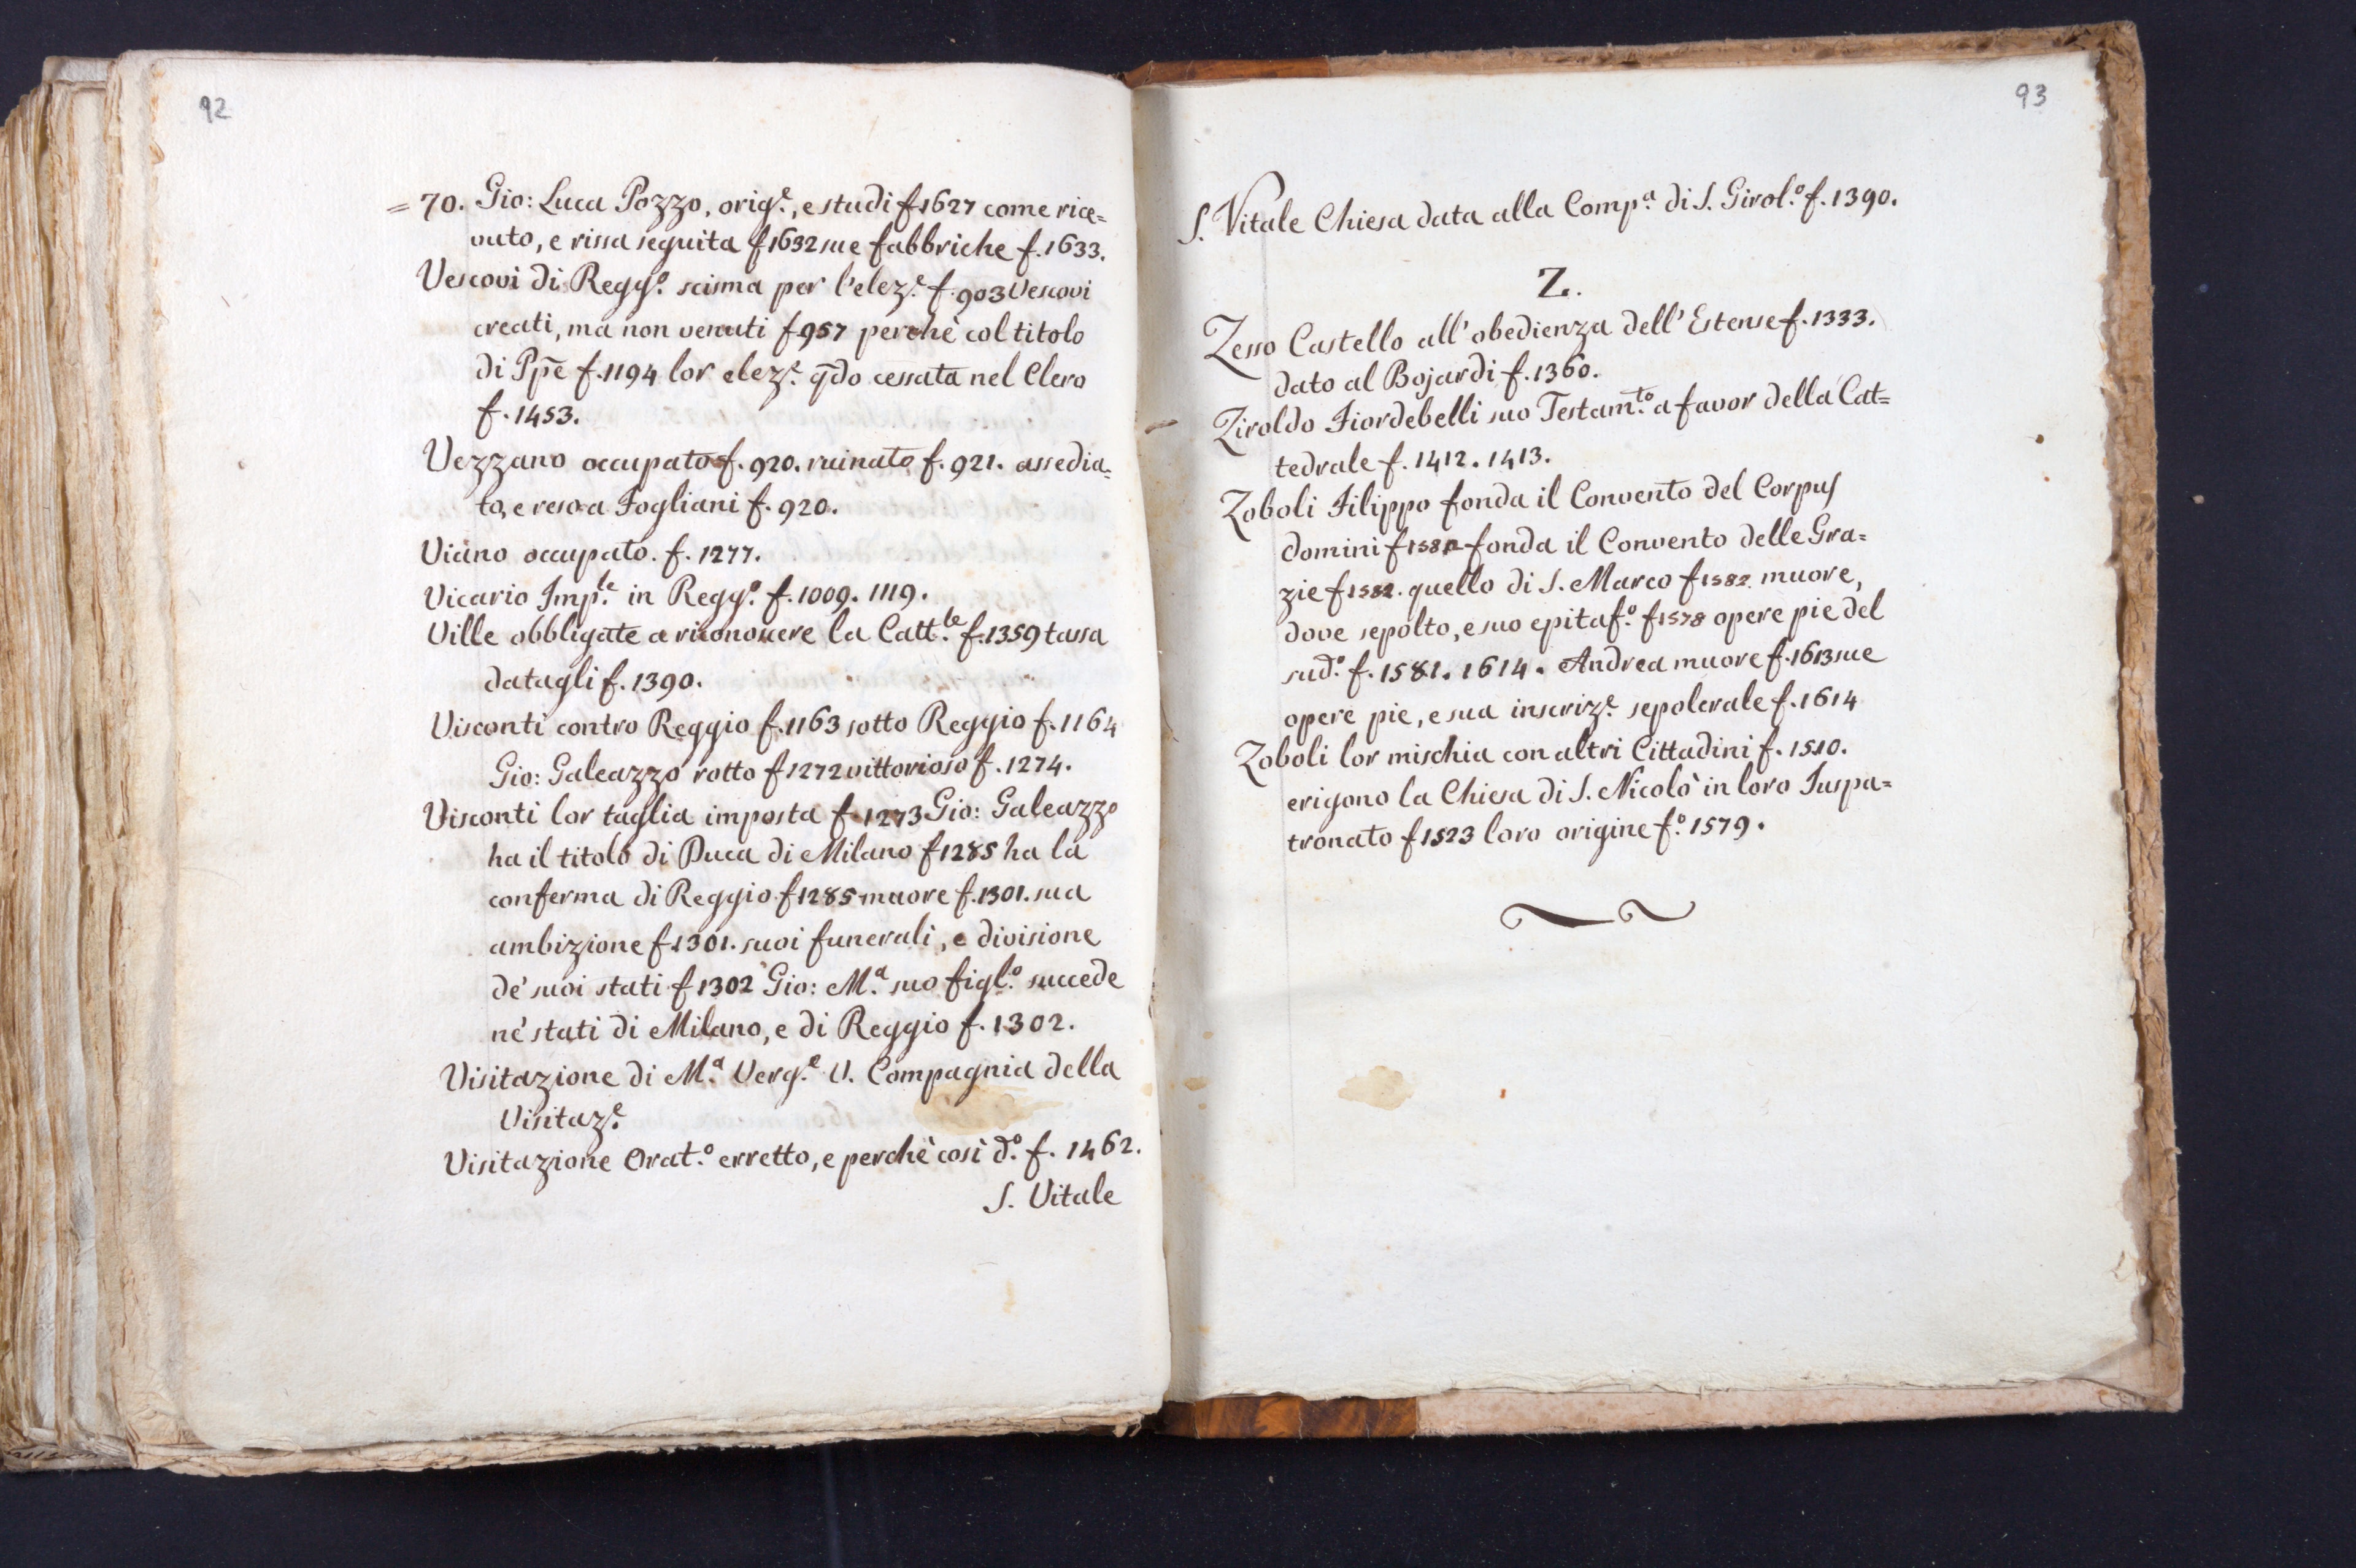 92
= 70. Gio: Luca Pozzo, orig.e, e studi f 1627 come rice=
vuto, e rissa seguita f 1632 sue fabbriche f. 1633.
Vescovi di Regg.o scisma per l'elez.e f. 903 Vescovi
creati, ma non venuti f 957 perchè col titolo
di Ppe f. 1194 lor elez.e qdo cessata nel Clero
f. 1453.
Vezzano occupato f. 920. ruinato f. 921. assedia=
to, e reso a Fogliani f. 920.
Viano occupato. f. 1277.
Vicario Imp.le in Regg.o f. 1009. 1119.
Ville obbligate a riconoscere la Catt.le f. 1359 tassa
datagli f. 1390.
Visconti contro Reggio f. 1163 sotto Reggio f. 1164
Gio: Galeazzo rotto f 1272 vittorioso f. 1274.
Visconti lor taglia imposta f 1273 Gio: Galeazzo
ha il titolo di Duca di Milano f 1285 ha la
conferma di Reggio f 1285 muore f. 1301. sua
ambizione f 1301. suoi funerali, e divisione
de' suoi stati f 1302 Gio: M.a suo figl.o succede
ne' stati di Milano, e di Reggio f. 1302.
Visitazione di M.a Verg.e V. Compagnia della
Visitaz.e
Visitazione Orat.o erretto, e perchè così d.o f. 1462.
S. Vitale
93
S. Vitale Chiesa data alla Comp.a di S. Girol.o f. 1390.
Z.
Zesso Castello all' obedienza dell' Estense f. 1333.
dato al Bojardi f. 1360.
Ziroldo Fiordebelli suo Testam.to a favor della Cat=
tedrale f. 1412. 1413.
Zoboli Filippo fonda il Convento del Corpus
domini f 1582 fonda il Convento delle Gra=
zie f 1582. quello di S. Marco f 1582 muore,
dove sepolto, e suo epitaf.o f 1578 opere pie del
sud.o f. 1581. 1614. Andrea muore f. 1613 sue
opere pie, e sua inscriz.e sepolcrale f. 1614
Zoboli lor mischia con altri Cittadini f. 1510.
erigono la Chiesa di S. Nicolò in loro Juspa=
tronato f 1523 loro origine f.o 1579.